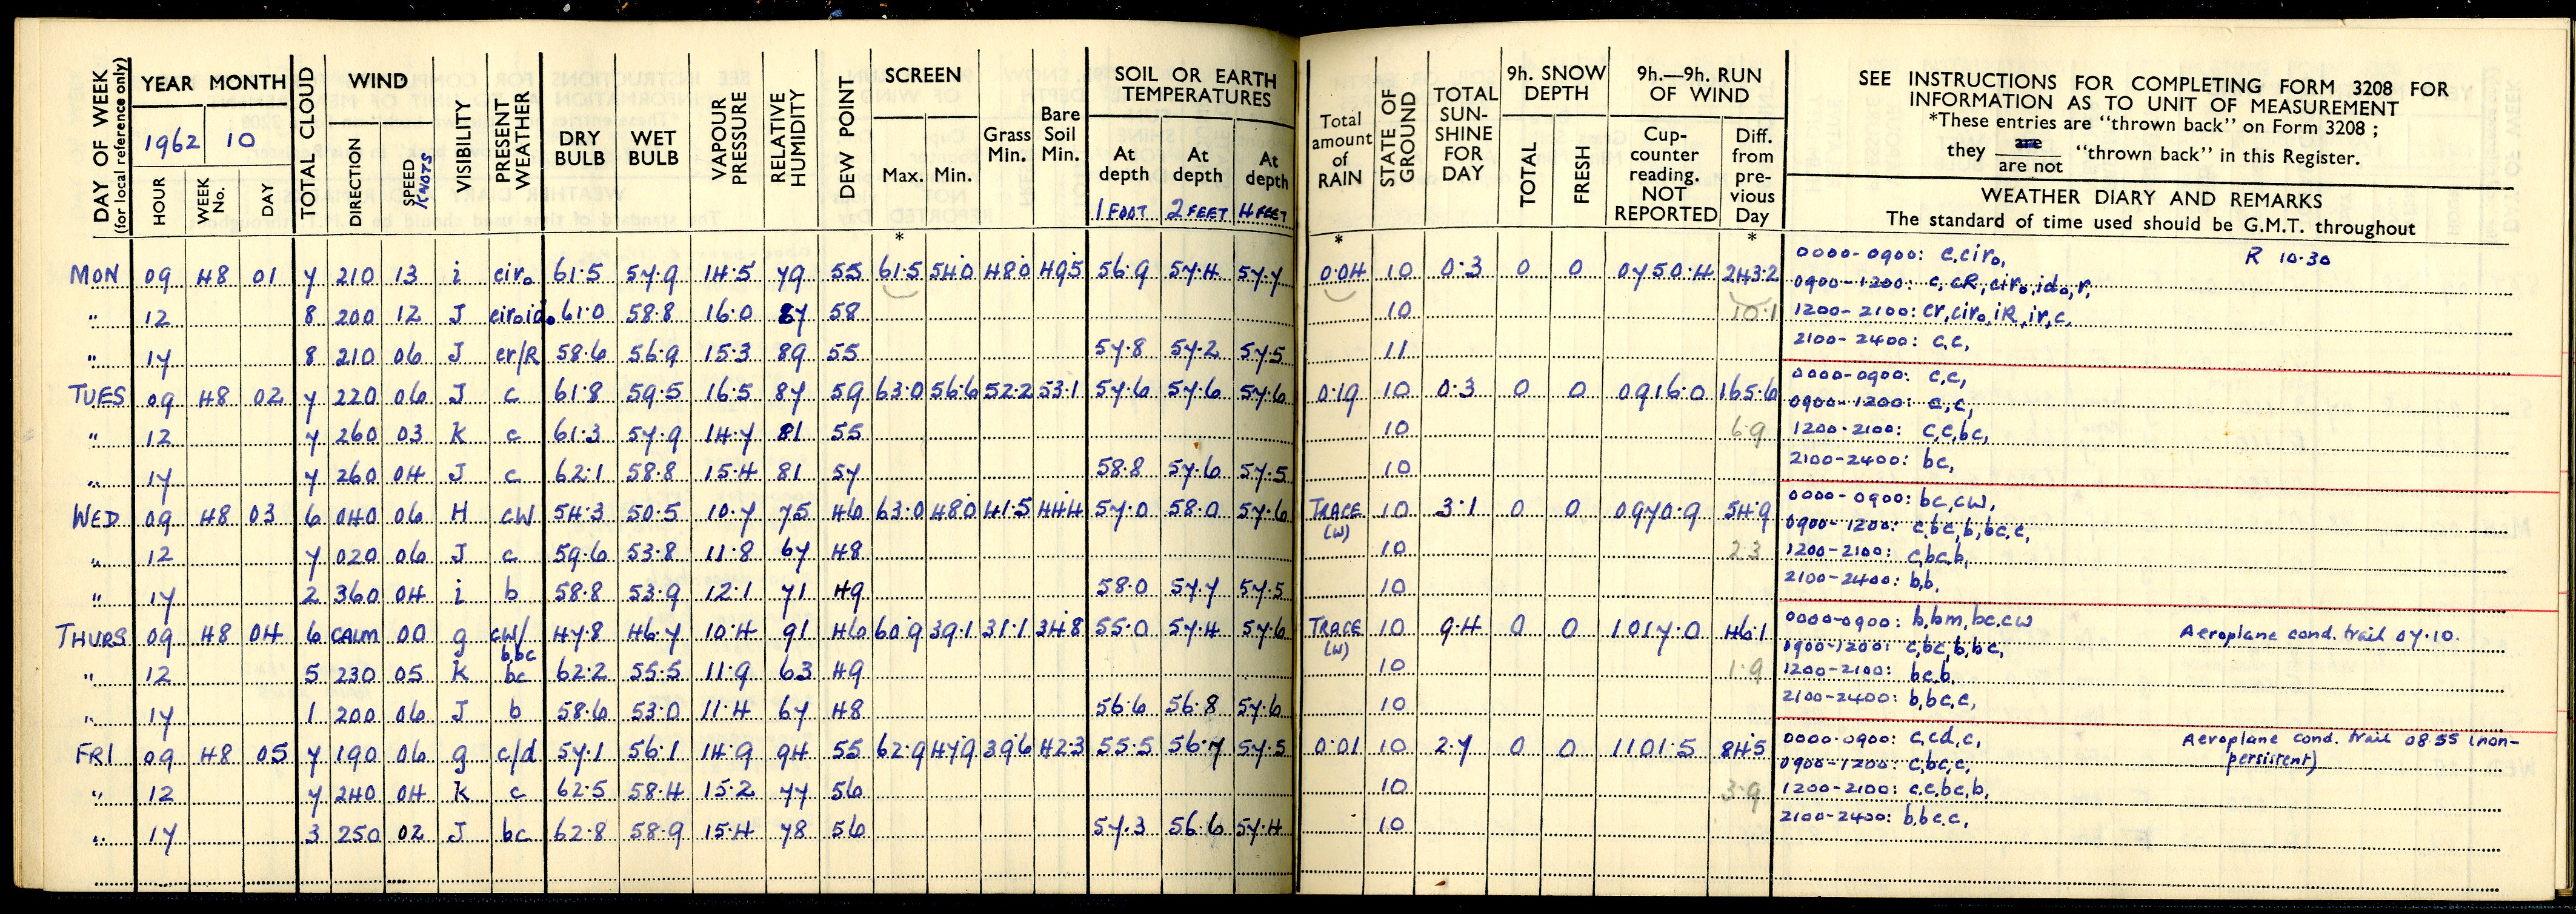 DAY OF WEEK (for local reference only) YEAR MONTH TOTAL CLOUD WIND VISIBILITY PRESENT WEATHER DRY BULB WET BULB VAPOUR PRESSURE RELATIVE HUMIDITY DEW POINT SCREEN Grass Min. Bare Soil Min. SOIL OR EARTH TEMPERATURES
1962 10
HOUR WEEK No. DAY DIRECTION SPEED KNOTS Max. Min. At depth At depth At depth
1 FOOT 2 FEET 4 FEET
Total amount of RAIN STATE OF GROUND TOTAL SUN-SHINE FOR DAY 9h. SNOW DEPTH 9h.—9h. RUN OF WIND
TOTAL FRESH Cup-counter reading. NOT REPORTED Diff. from pre-vious Day
SEE INSTRUCTIONS FOR COMPLETING FORM 3208 FOR
INFORMATION AS TO UNIT OF MEASUREMENT
*These entries are "thrown back" on Form 3208 ;
they are / are not "thrown back" in this Register.
WEATHER DIARY AND REMARKS
The standard of time used should be G.M.T. throughout
* * *
MON 09 48 01 7 210 13 i ciro 61.5 57.9 14.5 79 55 61.5 54.0 48.0 49.5 56.9 57.4 57.7 0.04 10 0.3 0 0 0750.4 243.2
" 12 8 200 12 J ciroido 61.0 58.8 16.0 87 58 10 10.1
" 17 8 210 06 J cr/R 58.6 56.9 15.3 89 55 57.8 57.2 57.5 11
0000-0900: c,ciro, R 10.30
0900-1200: c,cR,ciro,ido,r,
1200-2100: cr,ciro,iR,ir,c,
2100-2400: c,c,
TUES 09 48 02 7 220 06 J c 61.8 59.5 16.5 87 59 63.0 56.6 52.2 53.1 57.6 57.6 57.6 0.19 10 0.3 0 0 0916.0 165.6
" 12 7 260 03 K c 61.3 57.9 14.7 81 55 10 6.9
" 17 7 260 04 J c 62.1 58.8 15.4 81 57 58.8 57.6 57.5 10
0000-0900: c,c,
0900-1200: c,c,
1200-2100: c,c,bc,
2100-2400: bc,
WED 09 48 03 6 040 06 H cw 54.3 50.5 10.7 75 46 63.0 48.0 41.5 44.4 57.0 58.0 57.6 TRACE (w) 10 3.1 0 0 0970.9 54.9
" 12 7 020 06 J c 59.6 53.8 11.8 67 48 10 2.3
" 17 2 360 04 i b 58.8 53.9 12.1 71 49 58.0 57.7 57.5 10
0000-0900: bc,cw,
0900-1200: c,bc,b,bc,c,
1200-2100: c,bc,b,
2100-2400: b,b,
THURS 09 48 04 6 CALM 00 g cw/b,bc 47.8 46.7 10.4 91 46 60.9 39.1 31.1 34.8 55.0 57.4 57.6 TRACE (w) 10 9.4 0 0 1017.0 46.1
" 12 5 230 05 K bc 62.2 55.5 11.9 63 49 10 1.9
" 17 1 200 06 J b 58.6 53.0 11.4 67 48 56.6 56.8 57.6 10
0000-0900: b,bm,bc,cw Aeroplane cond. trail 07.10.
0900-1200: c,bc,b,bc,
1200-2100: bc,b,
2100-2400: b,bc,c,
FRI 09 48 05 7 190 06 g c/d 57.1 56.1 14.9 94 55 62.9 47.9 39.6 42.3 55.5 56.7 57.5 0.01 10 2.7 0 0 1101.5 84.5
" 12 7 240 04 K c 62.5 58.4 15.2 77 56 10 3.9
" 17 3 250 02 J bc 62.8 58.9 15.4 78 56 57.3 56.6 57.4 10
0000-0900: c,cd,c, Aeroplane cond. trail 08.55 (non-
0900-1200: c,bc,c, persistent)
1200-2100: c,c,bc,b,
2100-2400: b,bc,c,